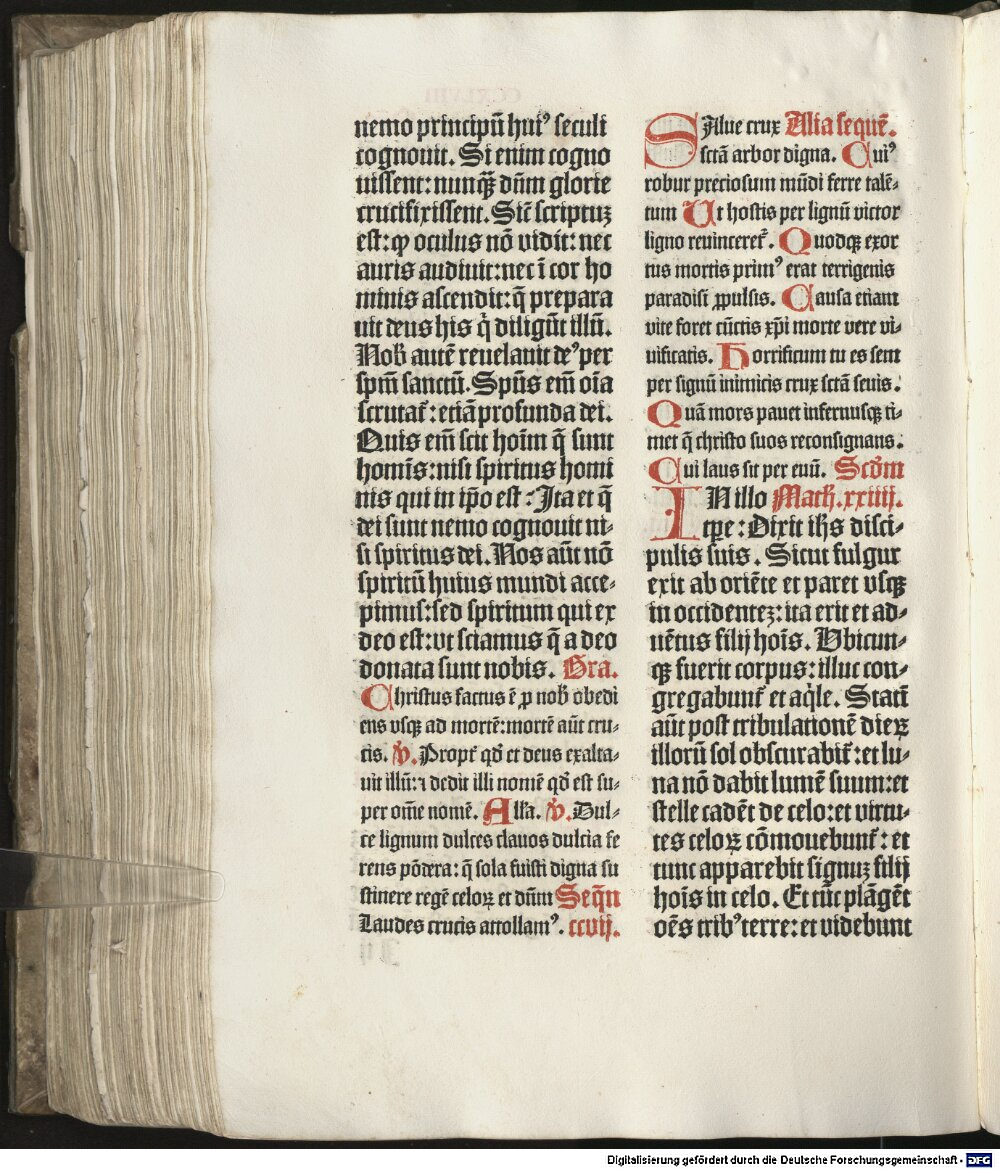 nemo principũ huiꝰ seculi
cognouit. Si enim cogno
uissent: nunqꝫ̃ dñm glorie
crucifixissent. Sic̃ scriptuꝫ
est: ꝙ oculus nõ vidit: nec
auris audiuit: nec ĩ cor ho
minis ascendit: q̃ prepara
uit deus his q̇ diligũt illũ.
Nob̃ autẽ reuelauit deꝰ per
spm̃ sanctũ. Spũs em̃ oĩa
scrutat᷑: etiã profunda dei.
Quis em̃ scit hoĩm q̃ sunt
homĩs: nisi spiritus homi
nis qui in ip̃o est: Ita et q̃
dei sunt nemo cognouit ni⸗
si spiritus dei. Nos aũt nõ
spiritũ huius mundi acce⸗
pimus: sed spiritum qui ex
deo est: vt sciamus q̃ a deo
donata sunt nobis. Gra.
Christus factus ẽ ꝓ nob̃ obedi
ens vsqꝫ ad mortẽ: mortẽ aũt cru⸗
cis. ꝟ. Propt᷑ qđ et deus exalta⸗
uit illũ: ⁊ dedit illi nomẽ qđ est su⸗
per om̃e nomẽ. All'a. ꝟ. Dul⸗
ce lignum dulces clauos dulcia fe
rens põdera: q̃ sola fuisti digna su
stinere regẽ celoꝝ et dñm Seq̃n
Laudes crucis attollamꝰ. ccvij.
SAlue crux Alia sequẽ.
sctã arbor digna. Cuiꝰ
robur preciosum mũdi ferre talẽ⸗
tum Ut hostis per lignũ victor
ligno reuinceret᷑. Quodqꝫ exor
tus mortis primꝰ erat terrigenis
paradisi ꝓpulsis. Causa etiam
vite foret cũctis xp̃i morte vere vi⸗
uificatis. Horrificum tu es sem
per signũ inimicis crux sctã seuis.
Quã mors pauet infernusqꝫ ti⸗
met q̃ christo suos reconsignans.
Cui laus sit per euũ. Scđm
IN illo Math̃. xxiiij.
tp̃e: Dixit ih̃s disci⸗
pulis suis. Sicut fulgur
exit ab oriẽte et paret vsqꝫ
in occidenteꝫ: ita erit et ad⸗
uẽtus filij hoĩs. Vbicun⸗
qꝫ fuerit corpus: illuc con⸗
gregabunt᷑ et aq̇le. Statĩ
aũt post tribulationẽ dieꝝ
illorũ sol obscurabit᷑: et lu⸗
na nõ dabit lumẽ suum: et
stelle cadẽt de celo: et virtu⸗
tes celoꝝ cõmouebunt᷑: et
tunc apparebit signuꝫ filij
hoĩs in celo. Et tũc plãgẽt
oẽs tribꝰ terre: et videbunt
Digitalisierung gefördert durch die Deutsche Forschungsgemeinschaft - DFG